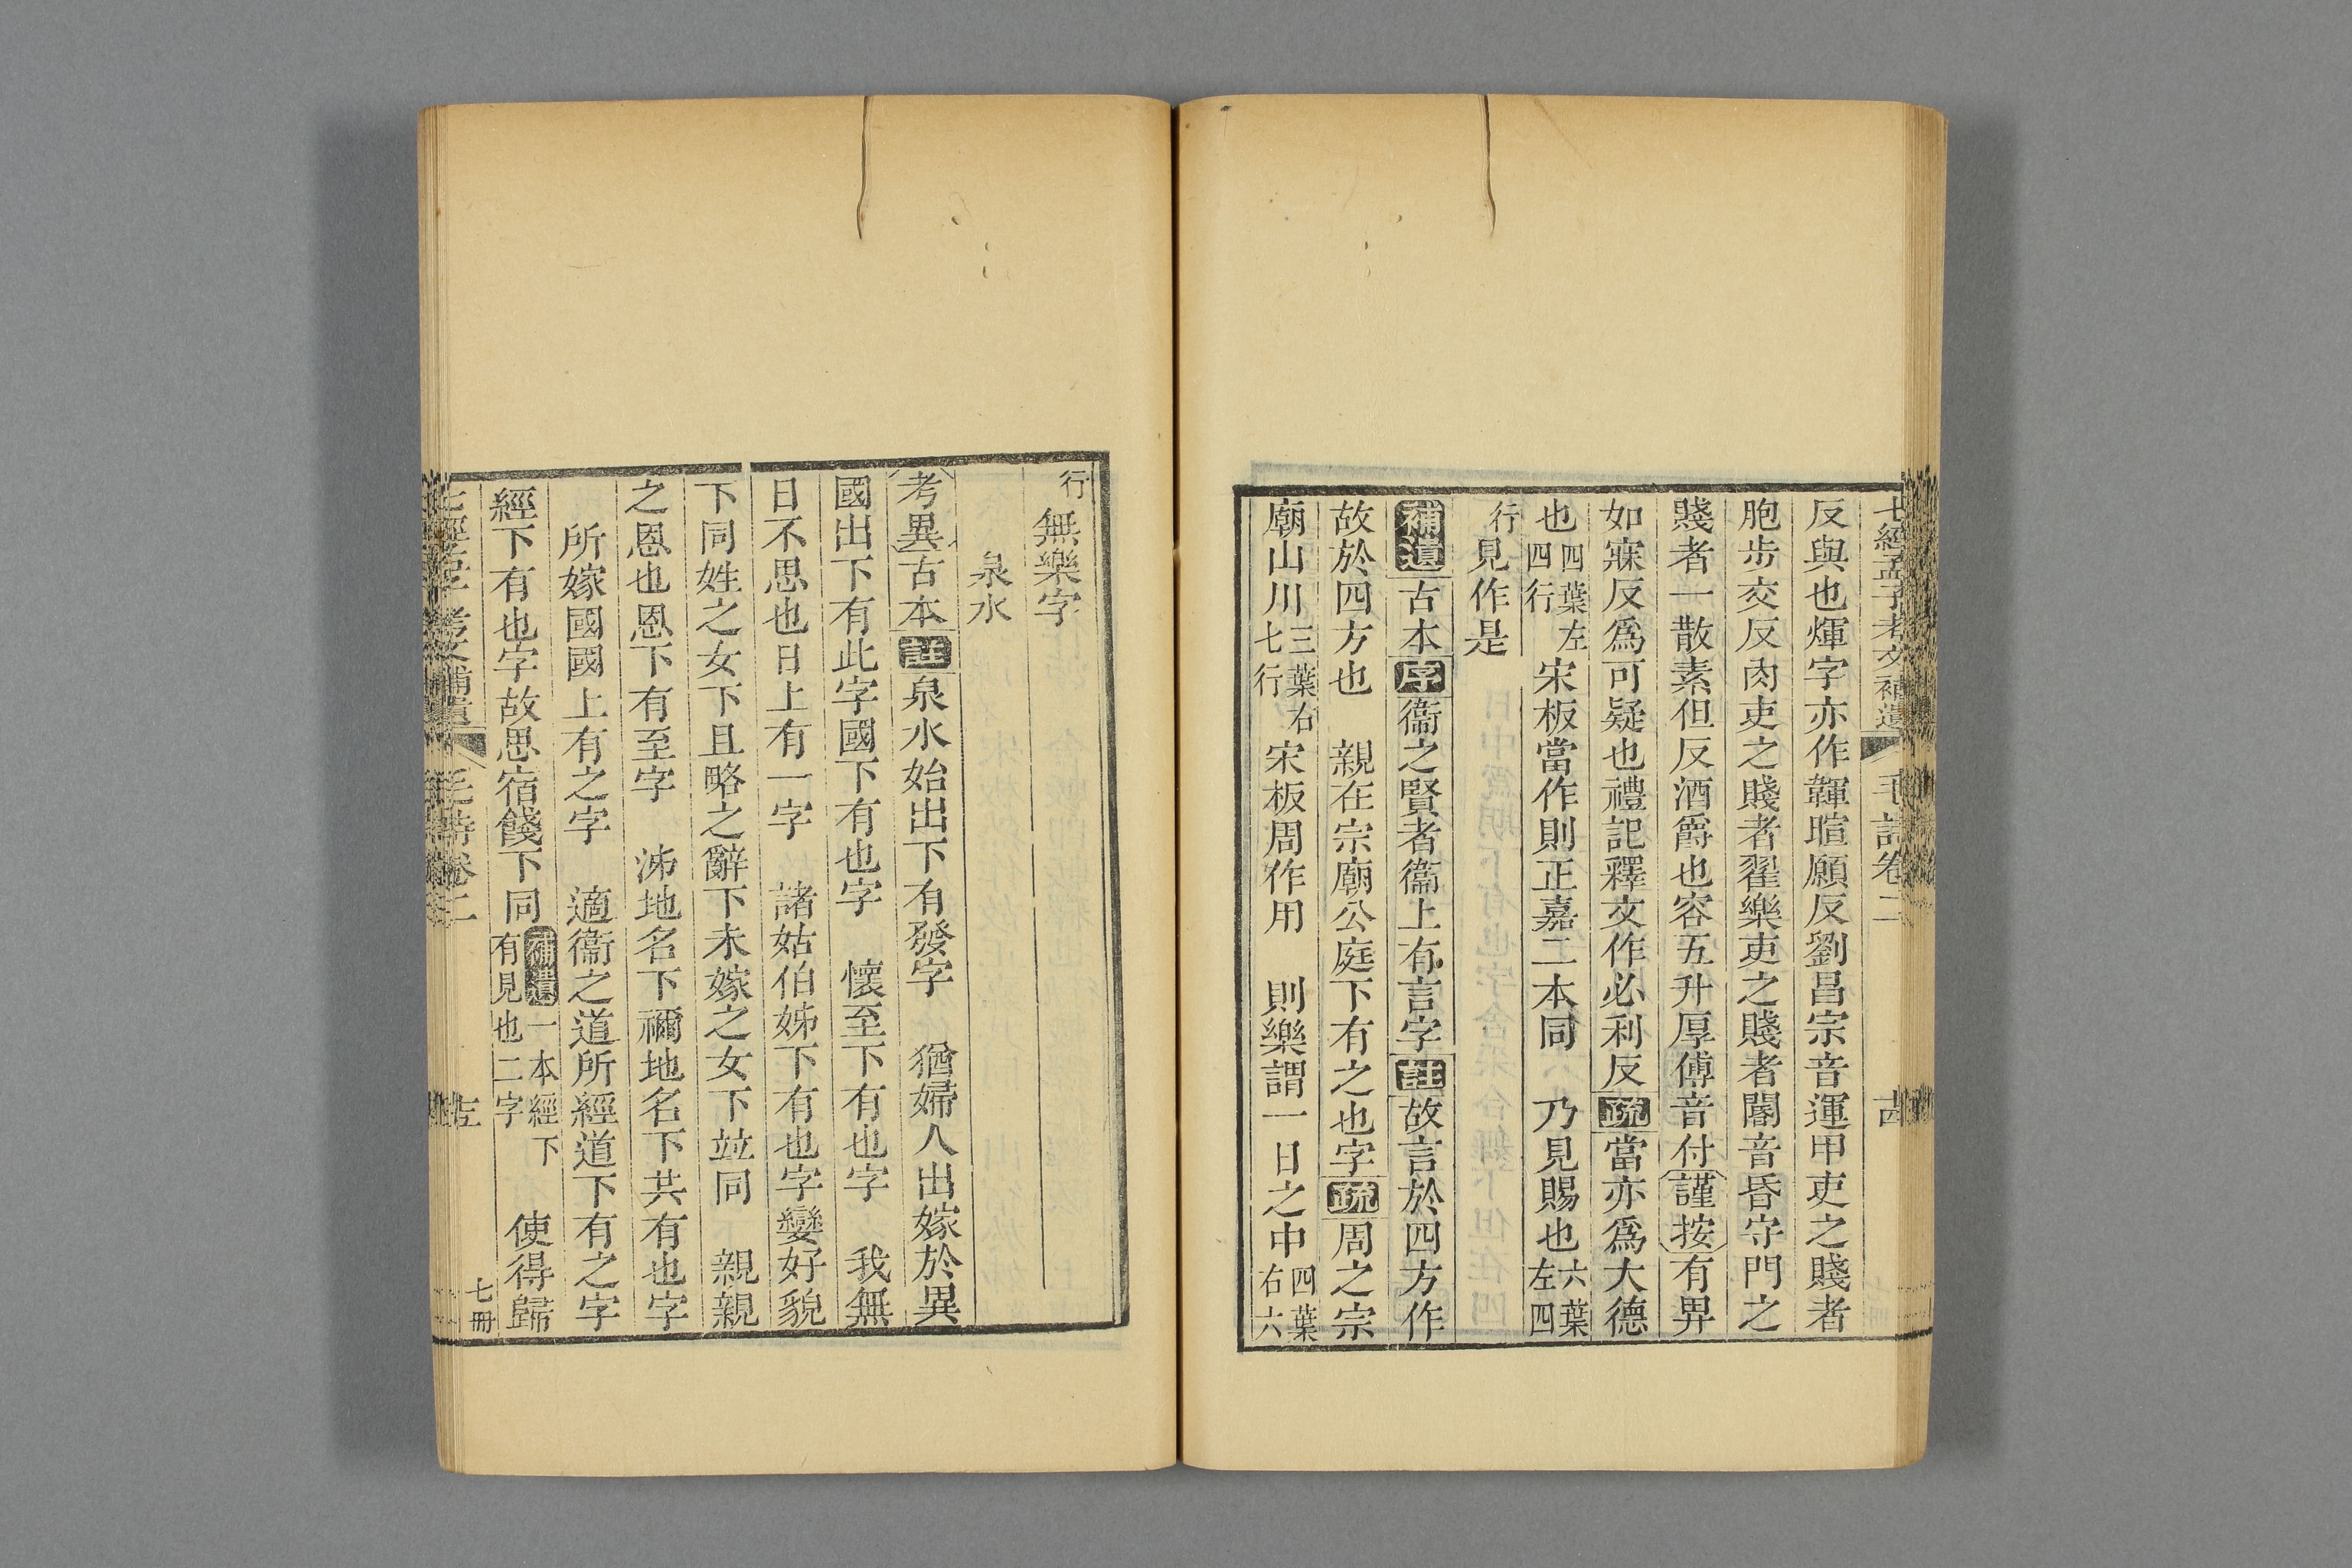 七經孟子考文補遺 毛詩卷二 古
反與也煇字亦作韗暄願反劉昌宗音運甲吏之賤者
胞步交反肉吏之賤者翟樂吏之賤者閽音昏守門之
賤者一散素但反酒爵也容五升厚傅音付謹按有畀
如寐反爲可疑也禮記釋文作必利反疏當亦爲大德
也四葉左四行 宋板當作則正嘉二本同 乃見賜也六葉左四
行見作是
補遺古本序衞之賢者衞上有言字註故言於四方作
故於四方也 親在宗廟公庭下有之也字疏周之宗
廟山川三葉右七行 宋板周作用 則樂謂一日之中四葉右六
行無樂字
泉水
考異古本註泉水始出下有發字 猶婦人出嫁於異
國出下有此字國下有也字 懷至下有也字 我無
日不思也日上有一字 諸姑伯姊下有也字孌好貌
下同姓之女下且略之辭下未嫁之女下竝同 親親
之恩也恩下有至字 泲地名下禰地名下共有也字
所嫁國國上有之字 適衞之道所經道下有之字
經下有也字故思宿餞下同補遺一本經下有見也二字 使得歸
七經孟子考文補遺 毛詩卷二 七冊